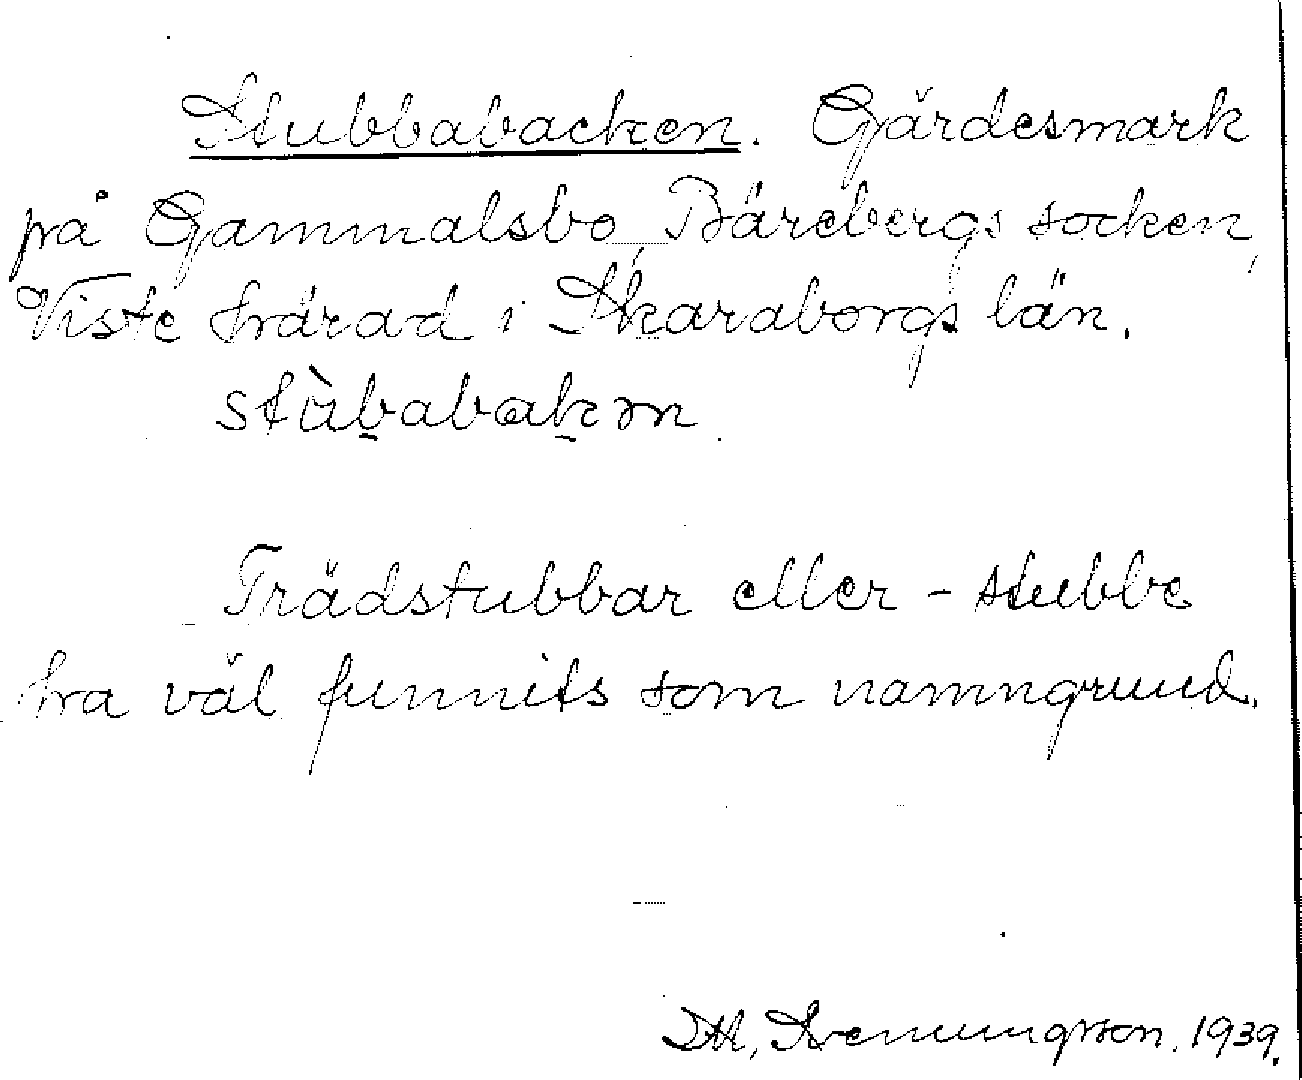 Stubbabacken. Gärdesmark
på Gammalsbo, Bärebergs socken,
Viste härad i Skaraborgs län.
stùbabakən
Trädstubbar eller - stubbe
ha väl funnits som namngrund.
Svenungsson. 1939.